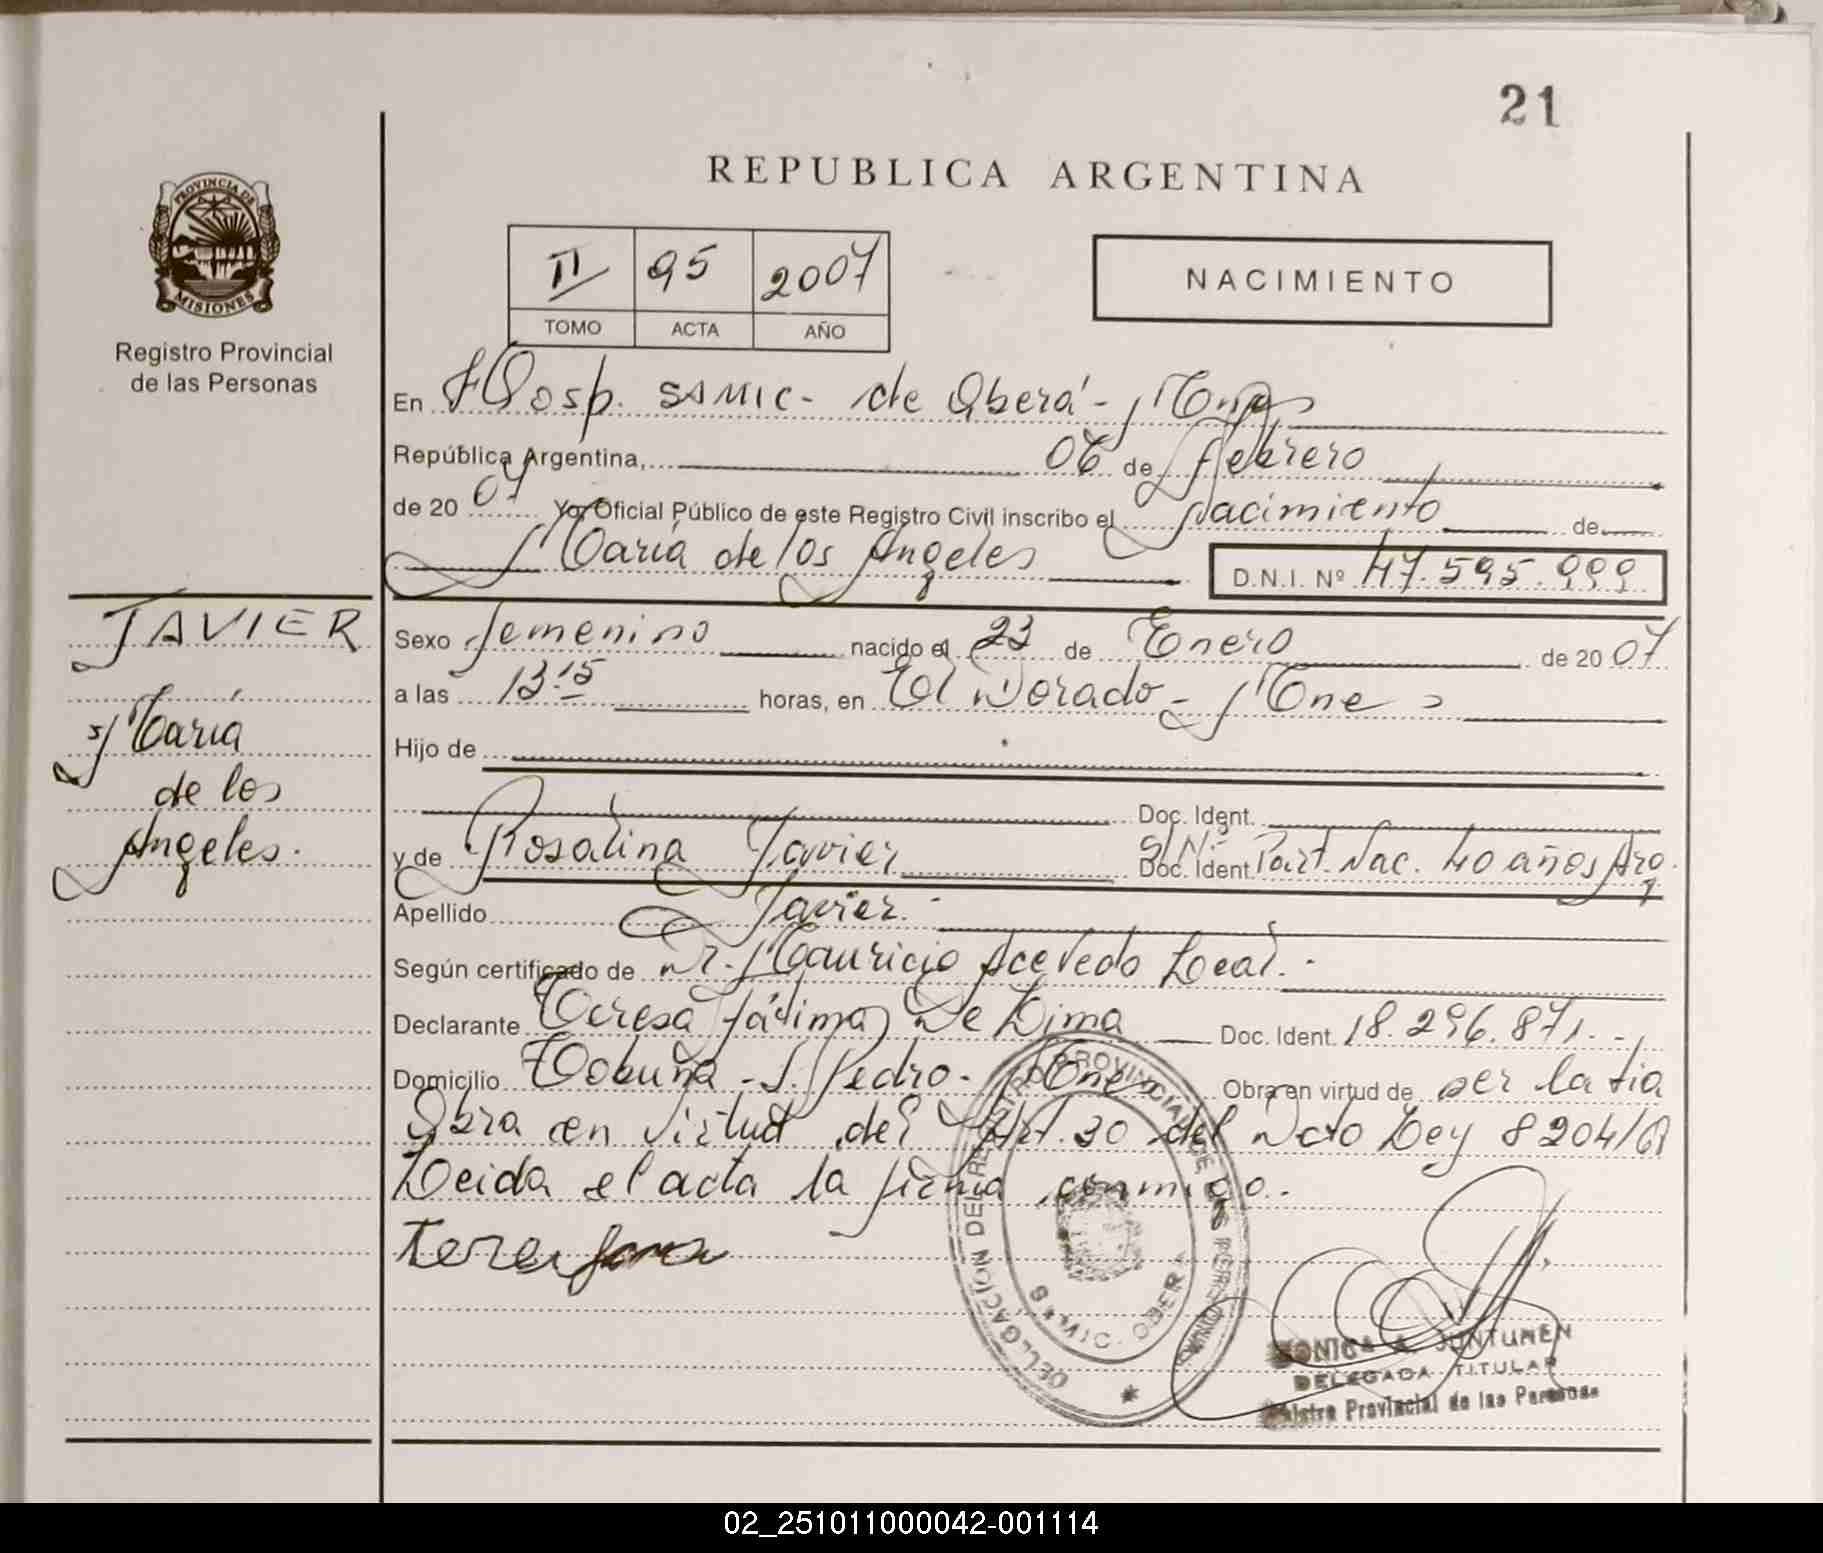 21
REPUBLICA ARGENTINA
PROVINCIA DE
MISIONES
Registro Provincial
de las Personas
II 95 2007
TOMO ACTA AÑO
NACIMIENTO
En Hosp. SAMIC - de Oberá - Mnes
República Argentina, 06 de febrero
de 20 07 Yo, Oficial Público de este Registro Civil inscribo el Nacimiento de
María de los Angeles D.N.I. Nº 47.595.999
JAVIER
María
de los
Angeles.
Sexo femenino nacido el 23 de Enero de 20 07
a las 13:15 horas, en El Dorado - Mnes
Hijo de
Doc. Ident.
y de Rosalina Javier S/Nº Doc. Ident. Part. Nac. 40 años Arg.
Apellido Javier.-
Según certificado de Dr. Mauricio Acevedo Local.-
Declarante Teresa Fátima De Lima Doc. Ident. 18.296.871.-
Domicilio Tobuna - S. Pedro - Mnes Obra en virtud de ser la tia
Obra en virtud del Art. 30 del Dcto Ley 8204/63
Leida el acta la firma conmigo.-
DELEGACION DEL REGISTRO PROVINCIAL DE LAS PERSONAS
SAMIC - OBERA
MONICA A. JUNTUNEN
DELEGADA TITULAR
Registro Provincial de las Personas
02_251011000042-001114